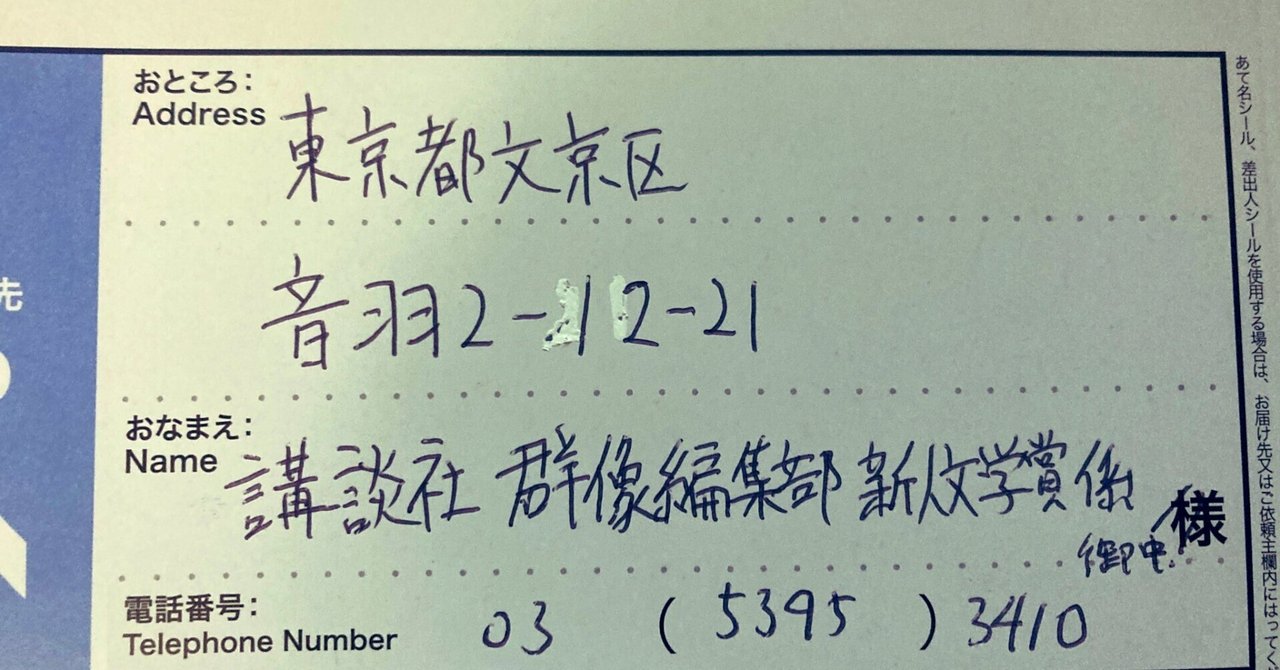 おところ：
Address
東京都文京区
音羽2-12-21
おなまえ：
Name
講談社 群像編集部 新人文学賞係 様
御中
電話番号：
Telephone Number
03 (5395) 3410
先
あて名シール、差出人シールを使用する場合は、お届け先又はご依頼主欄内にはってく